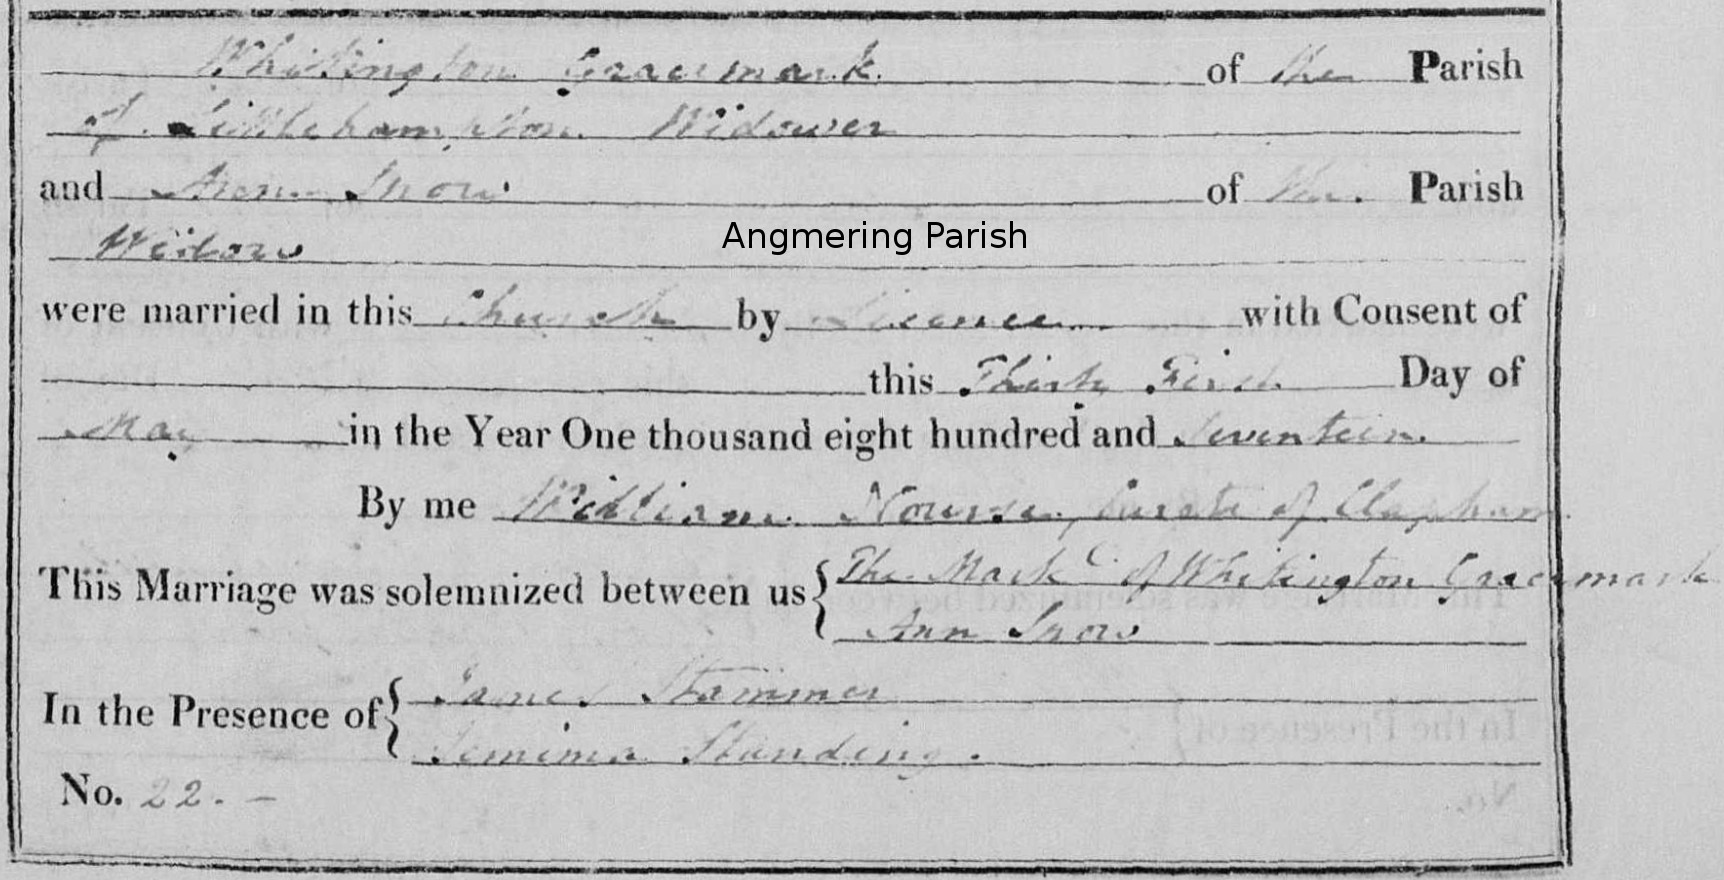 Whitington Gracemark of the Parish
of Littlehampton Widower
and Ann Snow of this Parish
Widow
Angmering Parish
were married in this Church by Licence with Consent of
this Thirty First Day of
May in the Year One thousand eight hundred and Seventeen
By me William Nourse, Curate of Clapham
This Marriage was solemnized between us { The Mark of Whitington Gracemark
Ann Snow
In the Presence of { James Stammer
Jemima Standing.
No. 22. –